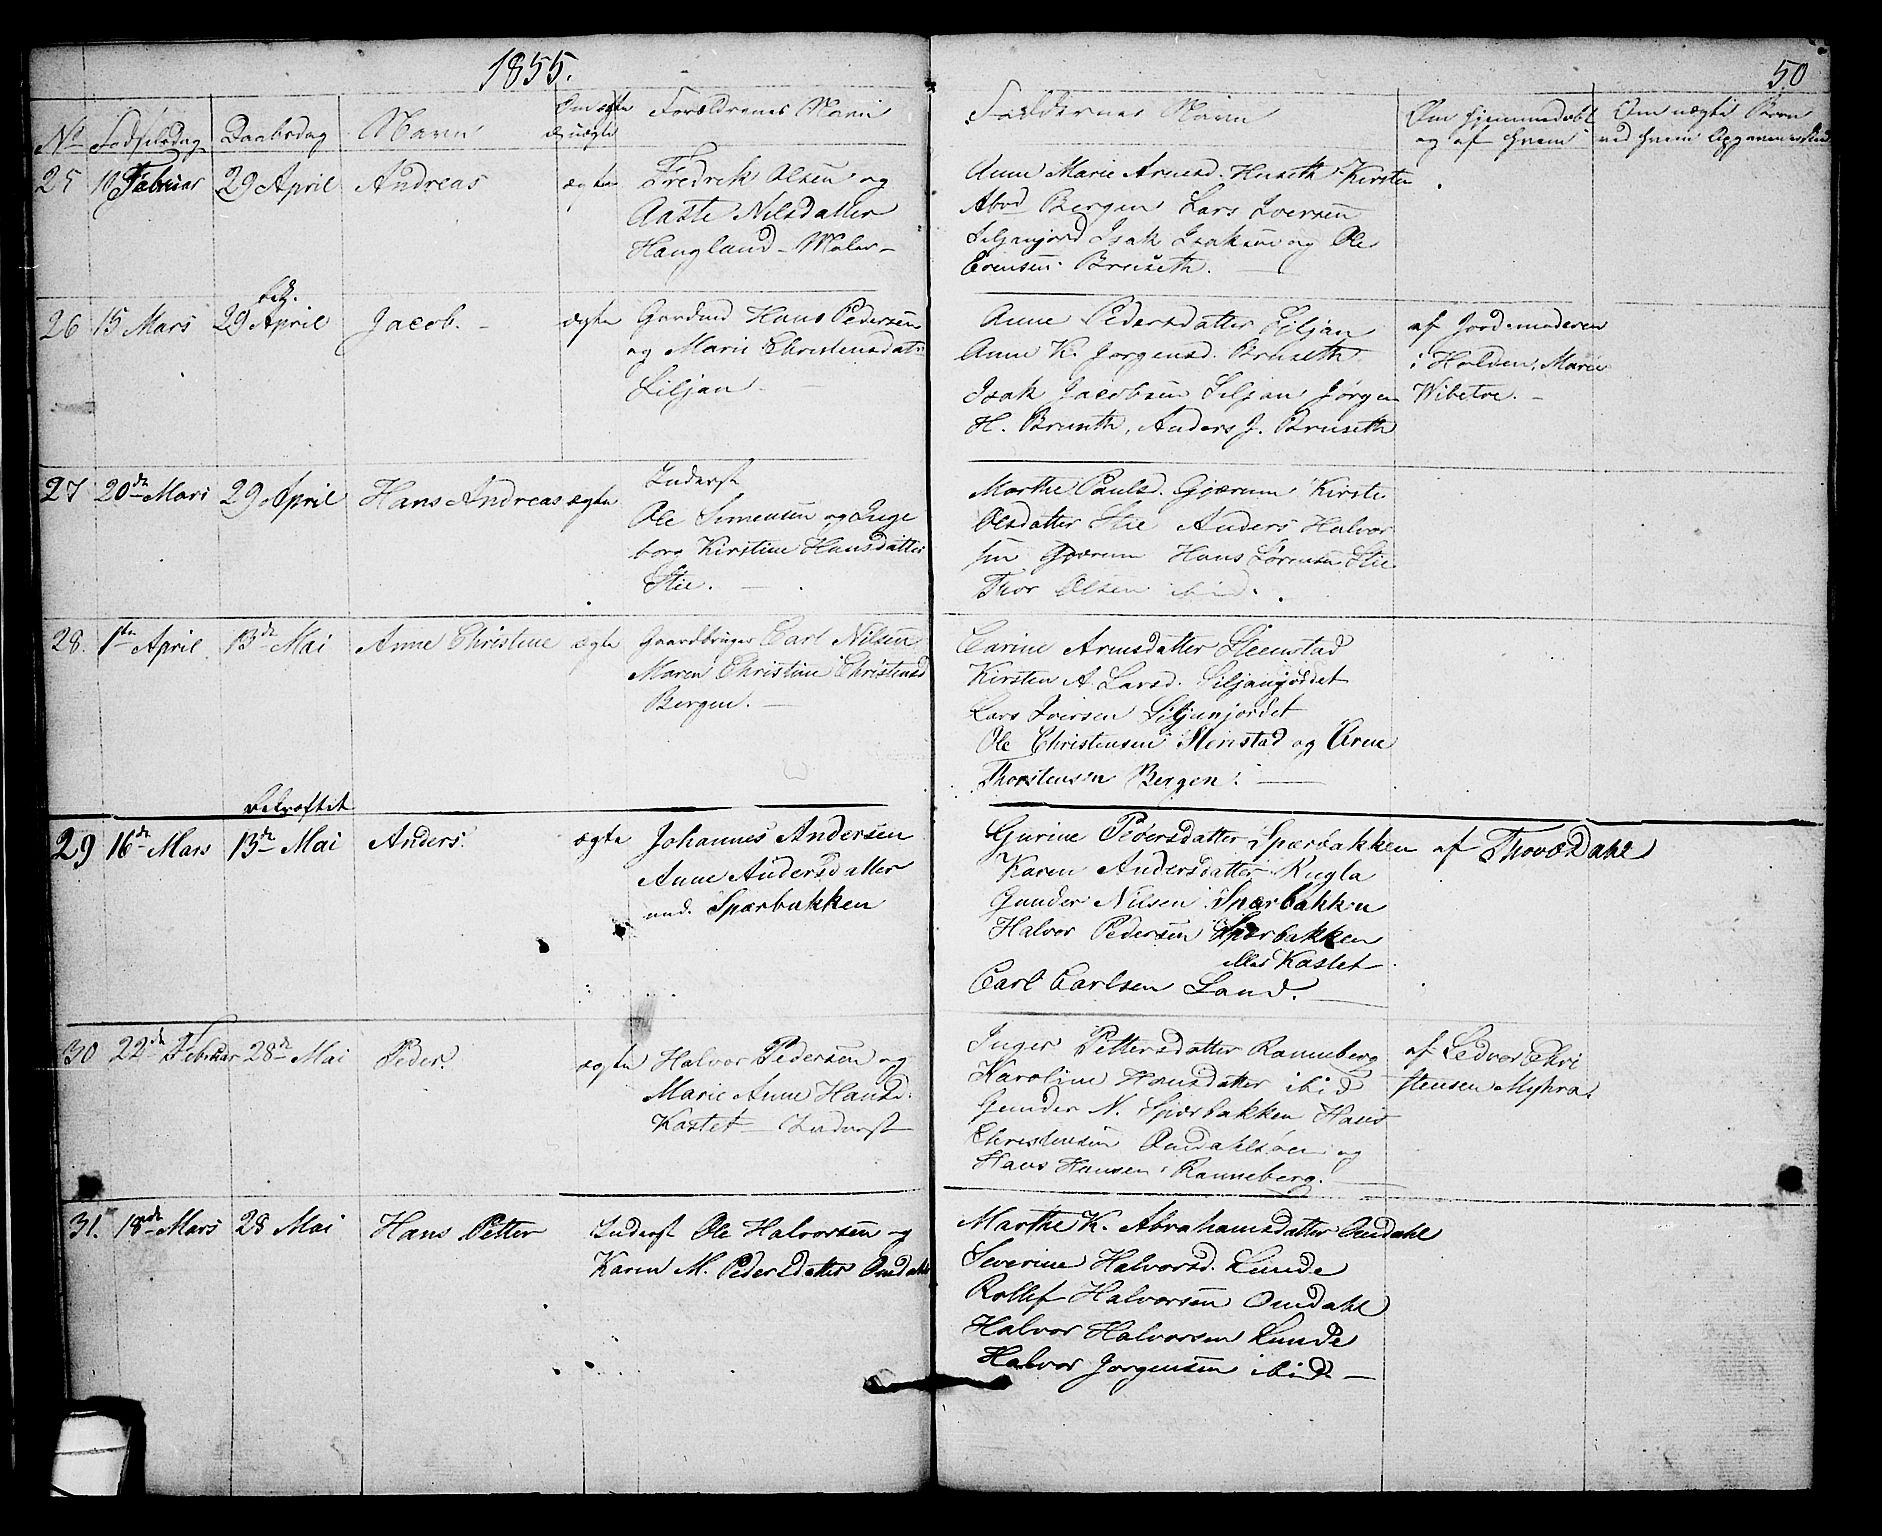 1855.
50
No Fødselsdag Daabsdag Navn Om ægte el. uægte Forældrenes Navn Faddernes Navn Om hjemmedøbt og af hvem Om uægte Børn
25 10 Februar 29 April Andreas ægte Fredrek Olsen og
Aaste Nilsdatter
Haugland - Maler -
Anne Marie Arnesd. Huseth Kirsten
Bergen Lars Iversen
Siljanjord Isak Isaksen og Ole
Evensen Bruseth.
26 15 Mars bekr. 29 April Jacob. - ægte Gaardmd Hans Pedersen
og Marie Christensdat.
Siljan. -
Anne Pedersdatter Siljan
Anne K. Jørgensd. Bruseth
Isak Jacobsen Siljan Jørgen
H. Bruseth, Anders J. Bruseth
af Jordemoderen
i Holden, Marie
Wibetoe. -
27 20de Mars 29 April Hans Andreas ægte Inderst
Ole Simensen og Inge
borg Kirstine Hansdatter
Stie. -
Marthe Paulsd. Gjærum Kirste
Olsdatter Stie Anders Halvor
sen Gjærum Hans Sørensen Stie
Thor Olsen ibid.
28. 1ste April 13de Mai Anne Christine ægte Gaardbruger Carl Nilsen
Maren Christine Christensd
Bergen. -
Carine Arnesdatter Steenstad
Kirsten A. Larsd. Siljanjordet
Lars Iversen Siljanjordet
Ole Christensen Stenstad og Arne
Thorstensen Bergen. -
29 16de Mars bekræftet 13de Mai Anders. ægte Johannes Andersen
Anne Andersdatter
und. Spærbakken
Gurine Pedersdatter Spærbakken
Karen Andersdatter Rugla
Gunder Nilsen Spærbakken
Halvor Pedersen Spærbakken
eller Kastet
Carl Carlsen Land. -
af Thov Dahl
30 22de Februar 28de Mai Peder. ægte Halvor Pedersen og
Marie Anne Hansd.
Kastet - Inderst
Inger Pettersdatter Ranneberg
Karoline Hansdatter ibid
Gunder N. Spærbakken Hans
Christensen Omdahlsøen og
Hans Hansen Ranneberg. -
af Sedvar Chri
stensen Myhra.
31. 18de Mars 28 Mai Hans Petter Inderst Ole Halvorsen og
Karen M. Pedersdatter Omdahl
Marthe K. Abrahamsdatter Omdahl
Severine Halvorsd. Lunde
Rollef Halvorsen Omdahl
Halvor Halvorsen Lunde
Halvor Jørgensen ibid -